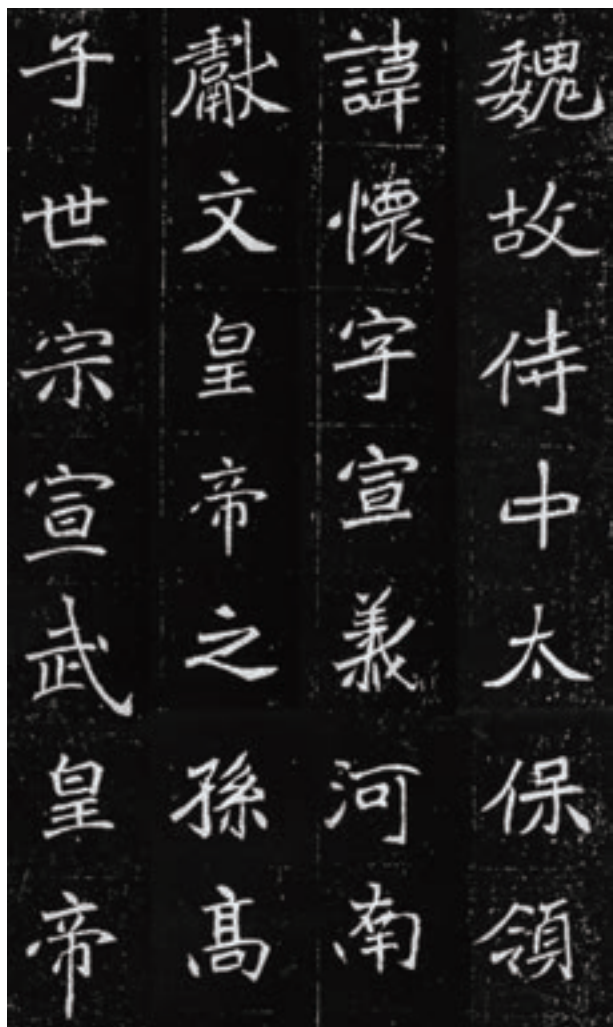 魏故侍中太保領
諱懷字宣義河南
獻文皇帝之孫高
子世宗宣武皇帝